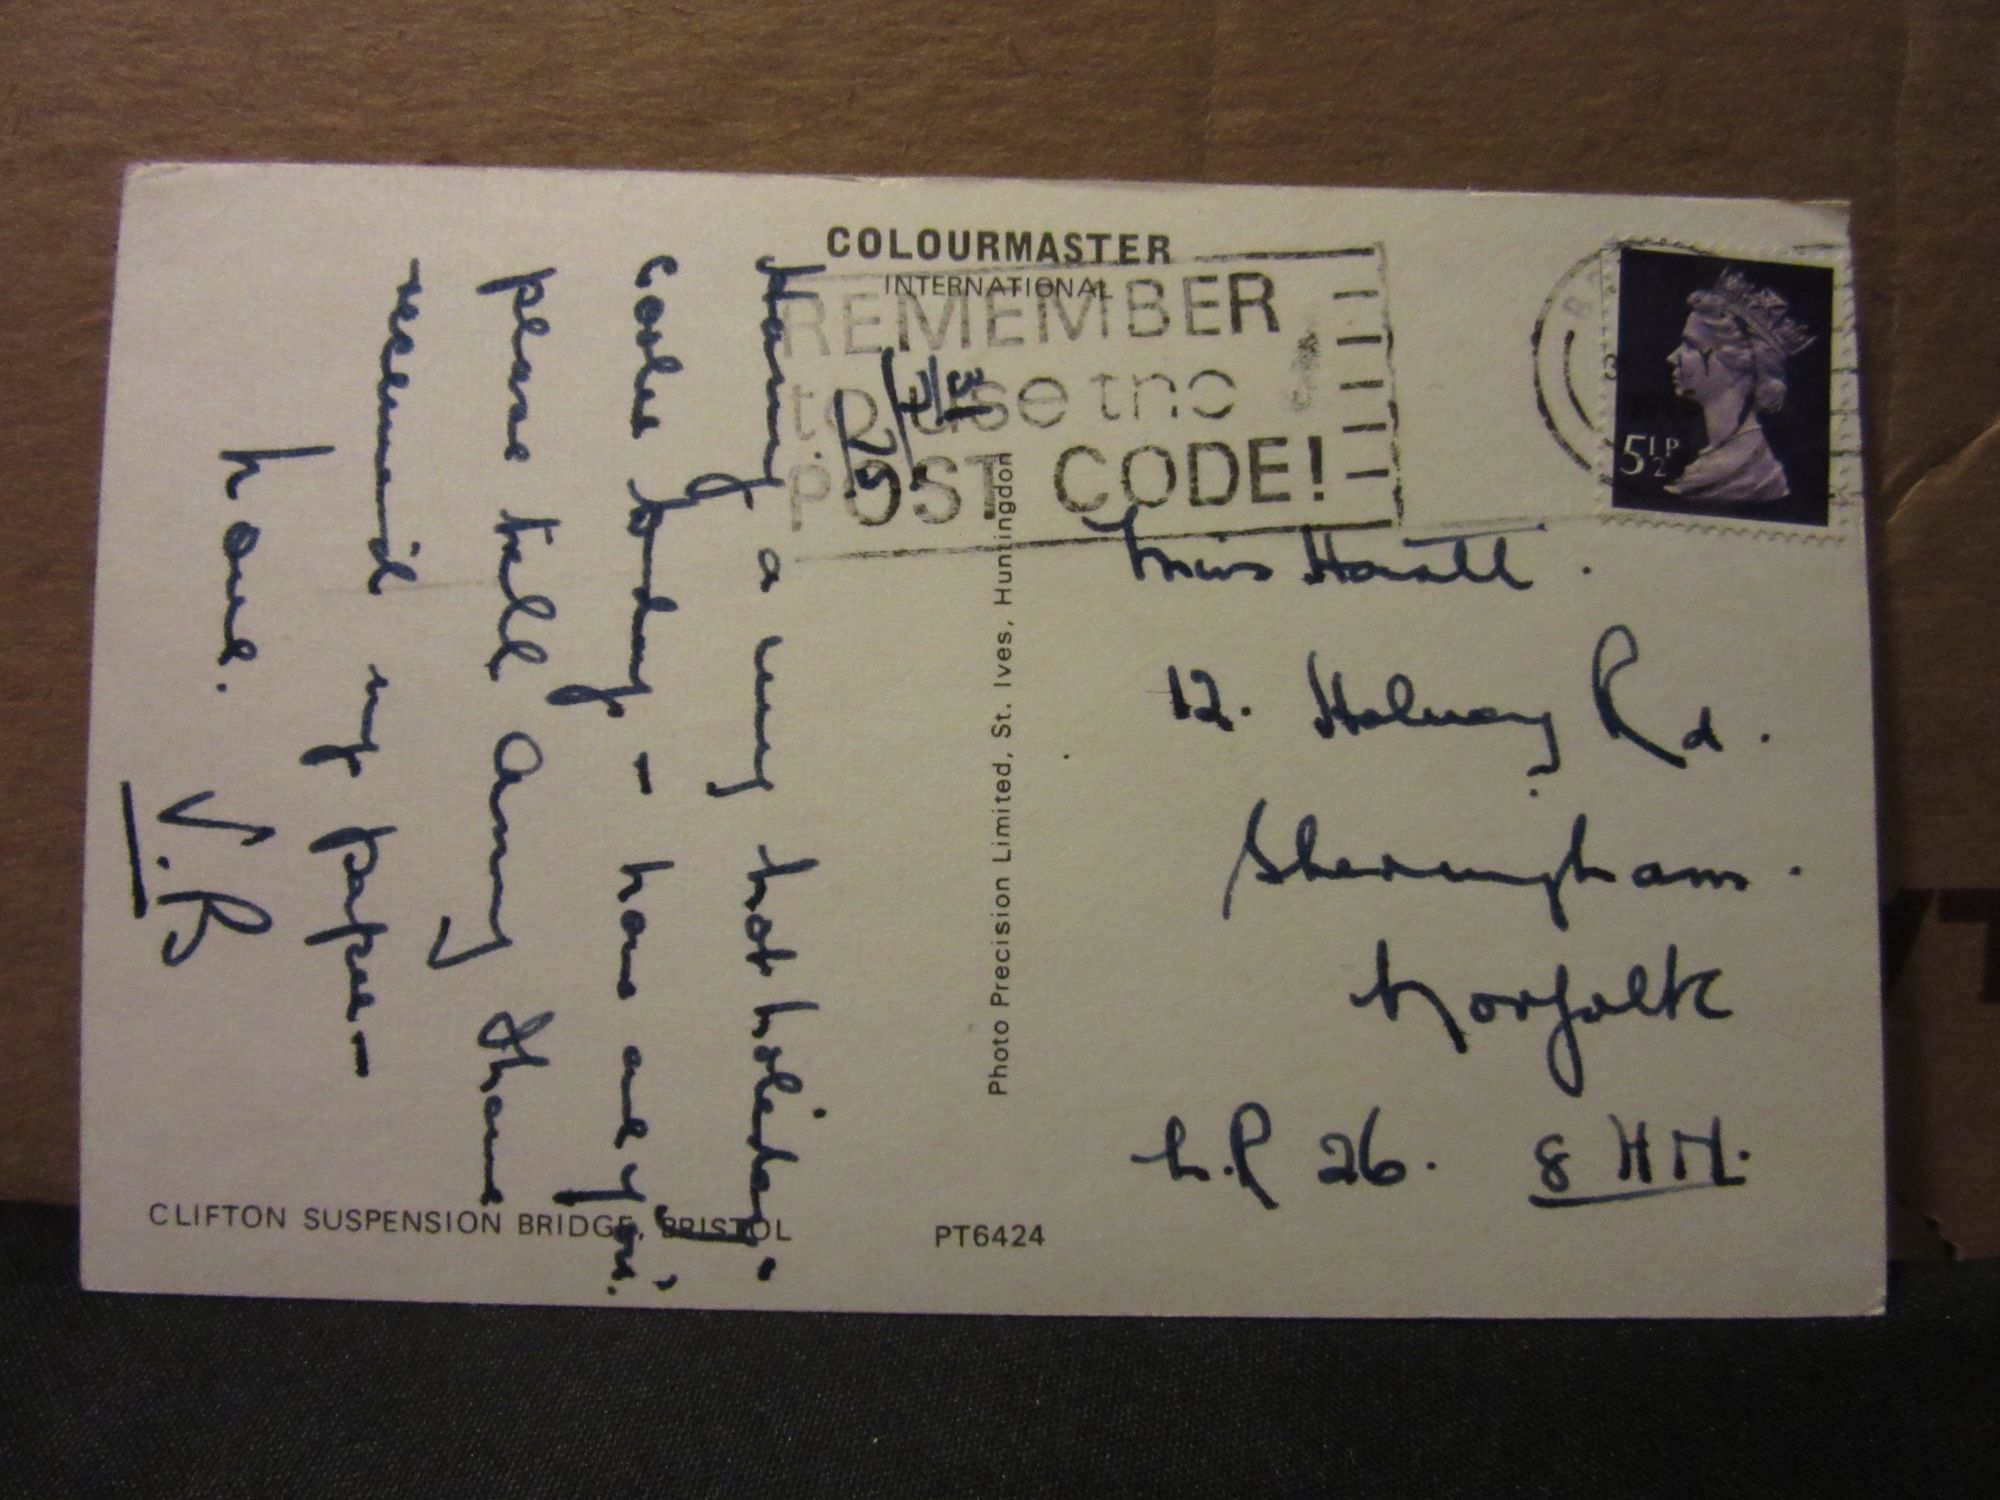 COLOURMASTER
INTERNATIONAL
REMEMBER
to use the
POST CODE!
5½P
31
75
Having a very hot holiday -
Cooler today - how are you,
please tell Amy I have
received my paper -
home.
V.B
Photo Precision Limited, St. Ives, Huntingdon
Miss
12. Holway Rd.
Sheringham.
Norfolk
26. 8 HN.
CLIFTON SUSPENSION BRIDGE, BRISTOL
PT6424